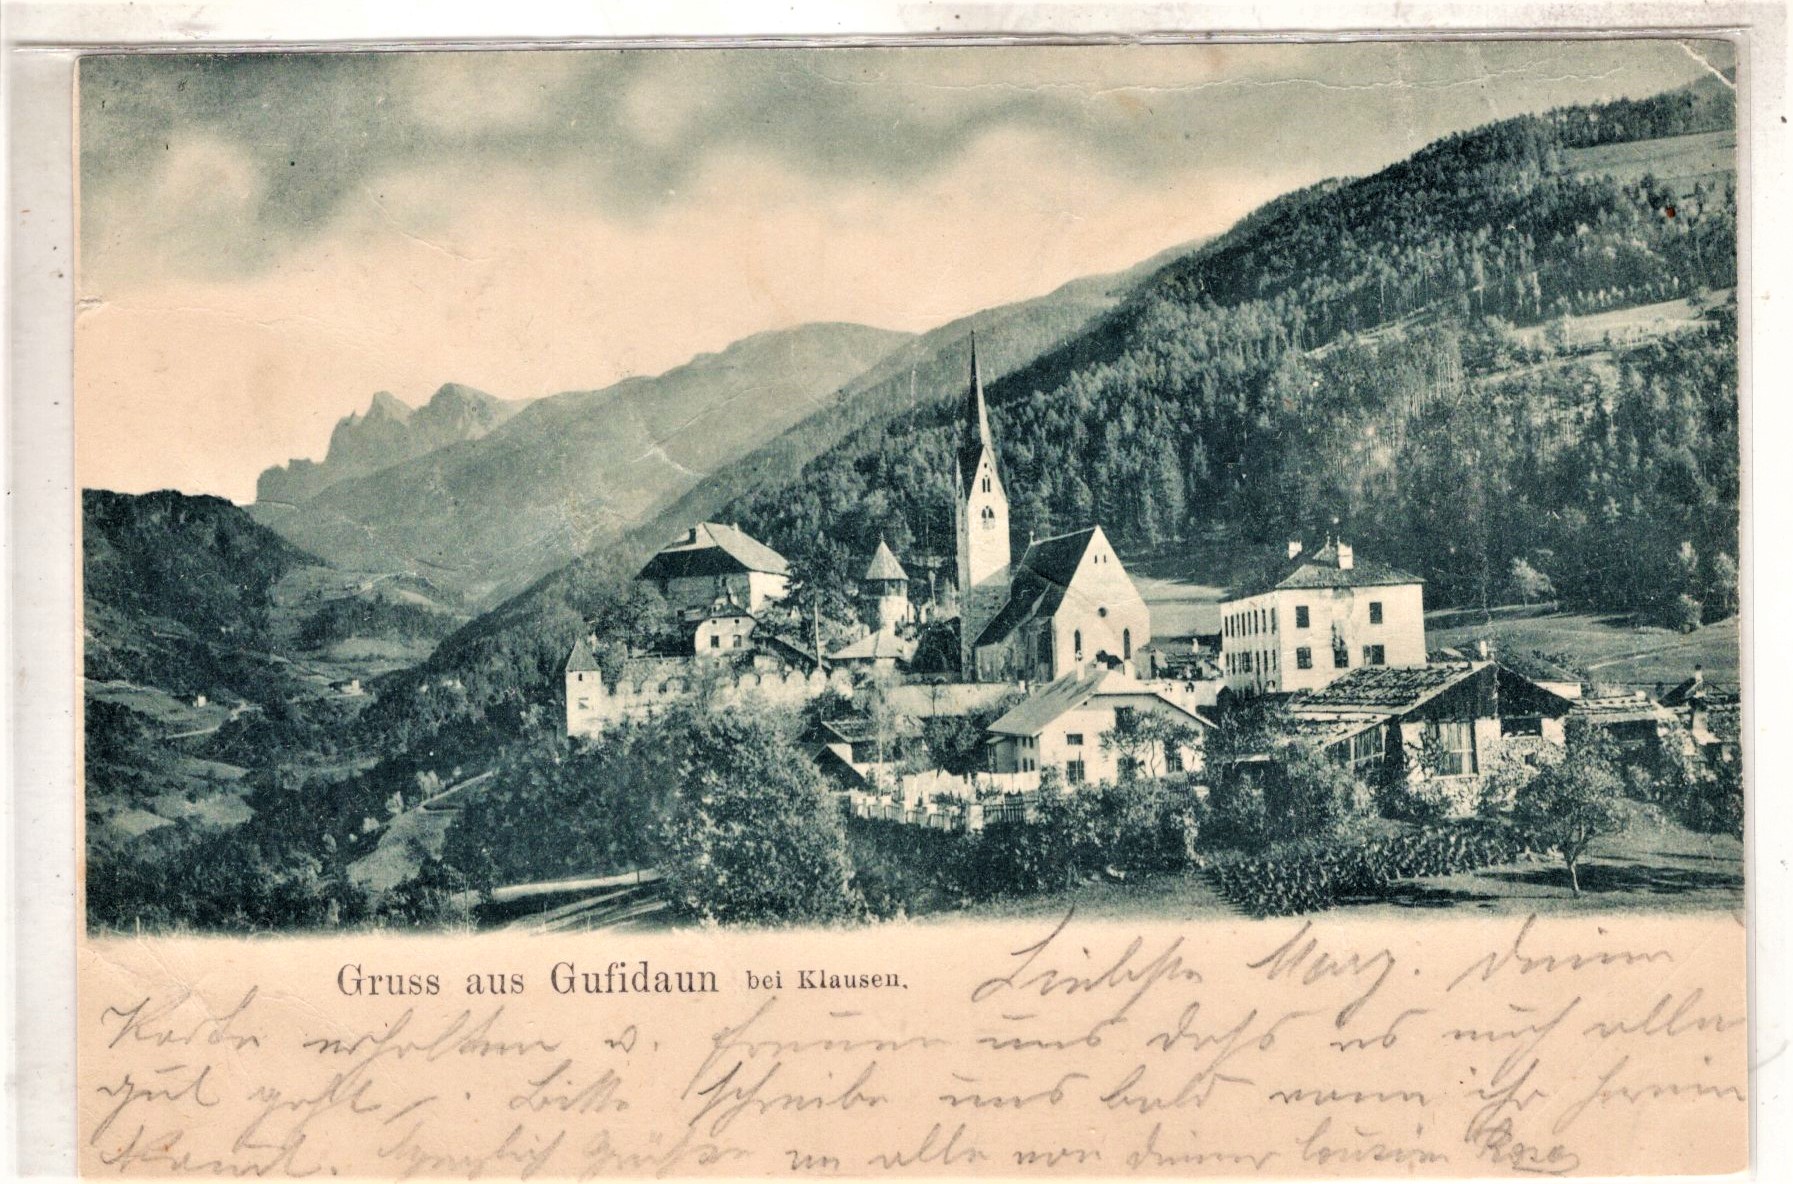 Gruss aus Gufidaun bei Klausen.
Liebste Mary. Deine
Karte erhalten u. freuen uns daß es euch alle
gut geht. Bitte schreibe uns bald wann ihr
kamt. Herzlich Grüße an alle von deiner Rosa